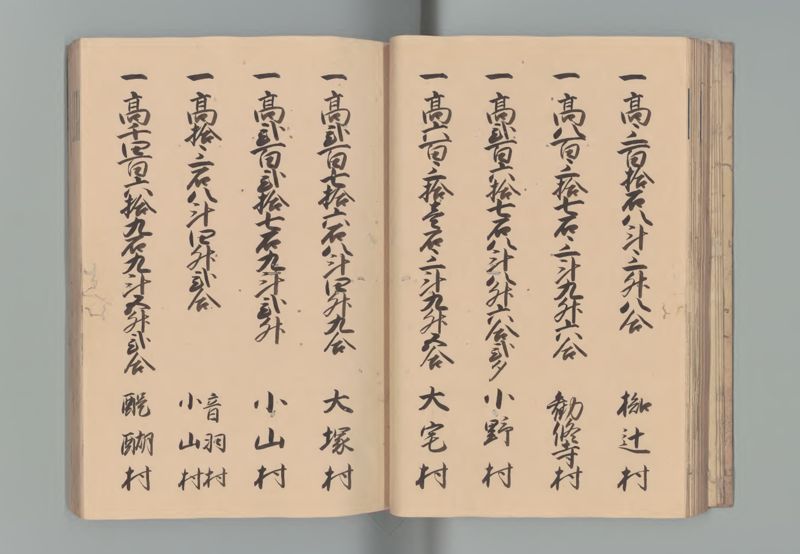 一高三百拾石八斗三升八合 椥辻村
一高八百三拾七石三斗九升六合 勧修寺村
一高弐百六拾七石八斗八升六合弐夕 小野村
一高六百三拾壱石三斗九升五合 大宅村
一高弐百七拾六石八斗四升九合 大塚村
一高弐百弐拾七石九斗弐升 小山村
一高拾三石八斗四升弐合 音羽村 小山村
一高千四百六拾九石九斗五升弐合 醍醐村